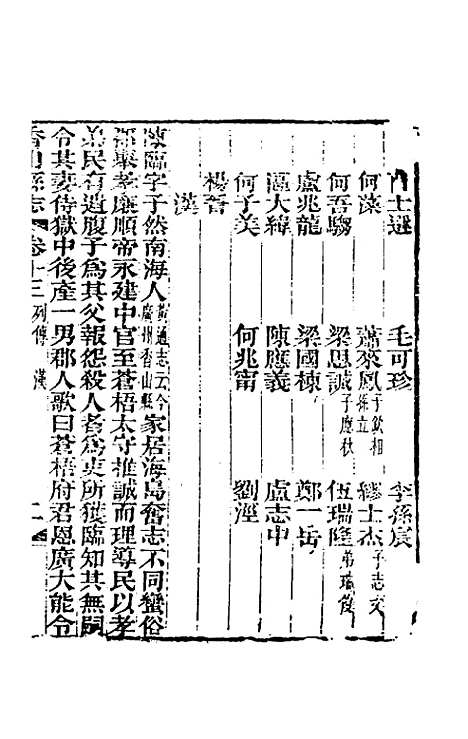 士遴 毛可珍 李孫宸
何藻 蕭來鳳 子欽相 繆士杰 子志文
何吾騶 梁思誠 子應秋 伍瑞隆 弟瑞俊
盧兆龍 梁國棟 鄭一岳
區大緯 陳應義 盧志中
何子美 何兆甯 劉涇
楊吾
漢
陳臨字子然南海人 黃通志云今廣州香山縣 家居海島奮志不同蠻俗
郡舉孝廉順帝永建中官至蒼梧太守推誠而理導民以孝
弟民有遺腹子為其父報怨殺人者為吏所獲臨知其無嗣
令其妻侍獄中後產一男郡人歌曰蒼梧府君恩廣大能令
香山縣志 卷十三 列傳 漢 二